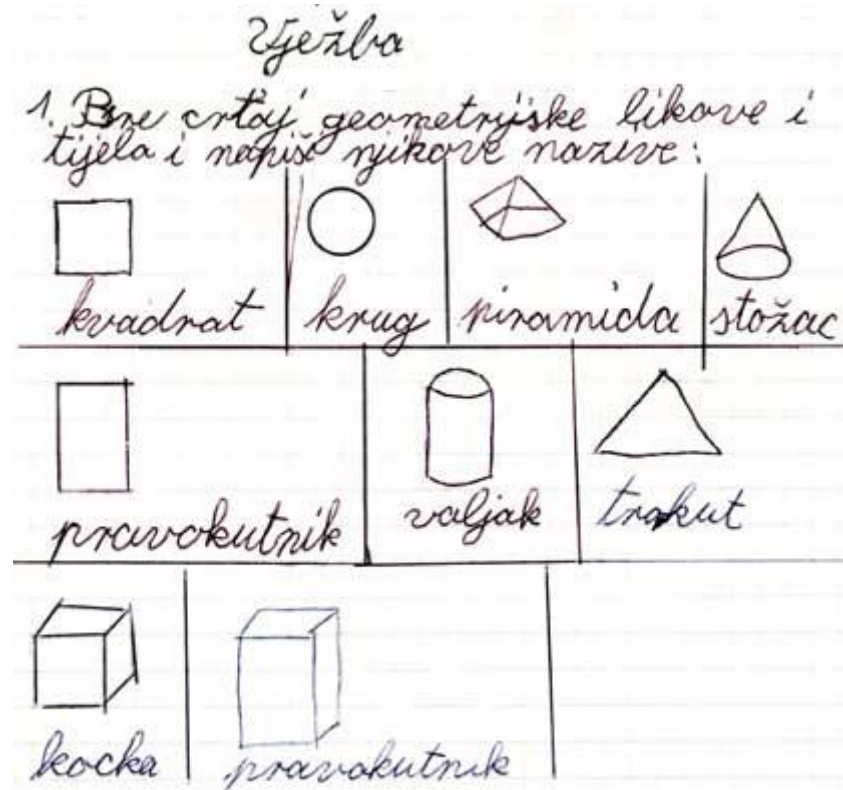 Vježba
1. Pre crtaj geometrijske likove i
tijela i napiši njikove nazive:
kvadrat krug piramida stožac
pravokutnik valjak trokut
kocka pravokutnik